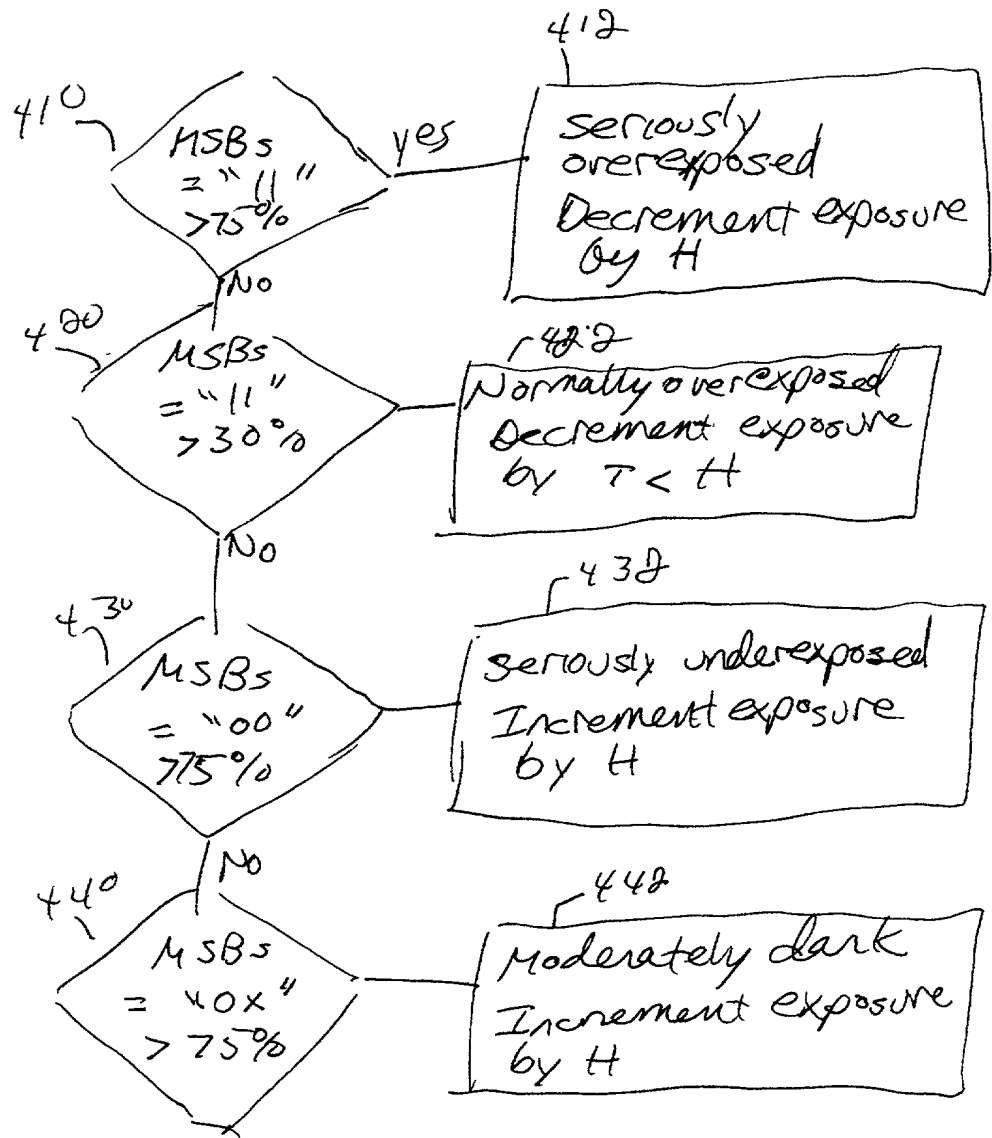 412
410
MSBs
= "11"
>75%
yes
seriously
overexposed
Decrement exposure
by H
No
420
MSBs
= "11"
>30%
422
Normally overexposed
Decrement exposure
by T < H
No
430
MSBs
= "00"
>75%
432
seriously underexposed
Increment exposure
by H
No
440
MSBs
= "0X"
> 75%
442
Moderately dark
Increment exposure
by H